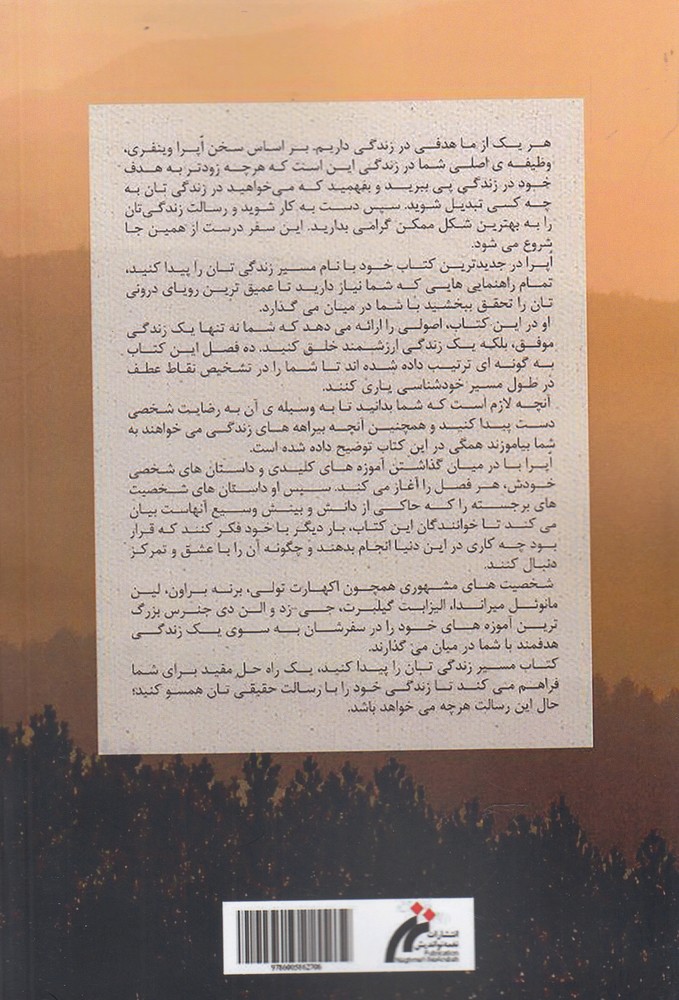 هر یک از ما هدفی در زندگی داریم. بر اساس سخن اُپرا وینفری،
وظیفه ی اصلی شما در زندگی این است که هرچه زودتر به هدف
خود در زندگی پی ببرید و بفهمید که می‌خواهید در زندگی تان به
چه کسی تبدیل شوید. سپس دست به کار شوید و رسالت زندگی‌تان
را به بهترین شکل ممکن گرامی بدارید. این سفر درست از همین جا
شروع می شود.
اُپرا در جدیدترین کتاب خود با نام مسیر زندگی تان را پیدا کنید،
تمام راهنمایی هایی که شما نیاز دارید تا عمیق ترین رویای درونی
تان را تحقق ببخشید با شما در میان می گذارد.
او در این کتاب، اصولی را ارائه می دهد که شما نه تنها یک زندگی
موفق، بلکه یک زندگی ارزشمند خلق کنید. ده فصل این کتاب
به گونه ای ترتیب داده شده اند تا شما را در تشخیص نقاط عطف
در طول مسیر خودشناسی یاری کنند.
آنچه لازم است که شما بدانید تا به وسیله ی آن به رضایت شخصی
دست پیدا کنید و همچنین آنچه بیراهه های زندگی می خواهند به
شما بیاموزند همگی در این کتاب توضیح داده شده است.
اُپرا با در میان گذاشتن آموزه های کلیدی و داستان های شخصی
خودش، هر فصل را آغاز می کند. سپس او داستان های شخصیت
های برجسته را که حاکی از دانش و بینش وسیع آنهاست بیان
می کند تا خوانندگان این کتاب، بار دیگر با خود فکر کنند که قرار
بود چه کاری در این دنیا انجام بدهند و چگونه آن را با عشق و تمرکز
دنبال کنند.
شخصیت های مشهوری همچون اکهارت تولی، برنه براون، لین
مانوئل میراندا، الیزابت گیلبرت، جی-زد و الن دی جنرس بزرگ
ترین آموزه های خود را در سفرشان به سوی یک زندگی
هدفمند با شما در میان می گذارند.
کتاب مسیر زندگی تان را پیدا کنید، یک راه حل مفید برای شما
فراهم می کند تا زندگی خود را با رسالت حقیقی تان همسو کنید؛
حال این رسالت هرچه می خواهد باشد.
انتشارات
نغمه نواندیش
Publication
Naghmeh NoAndish
9786005862706